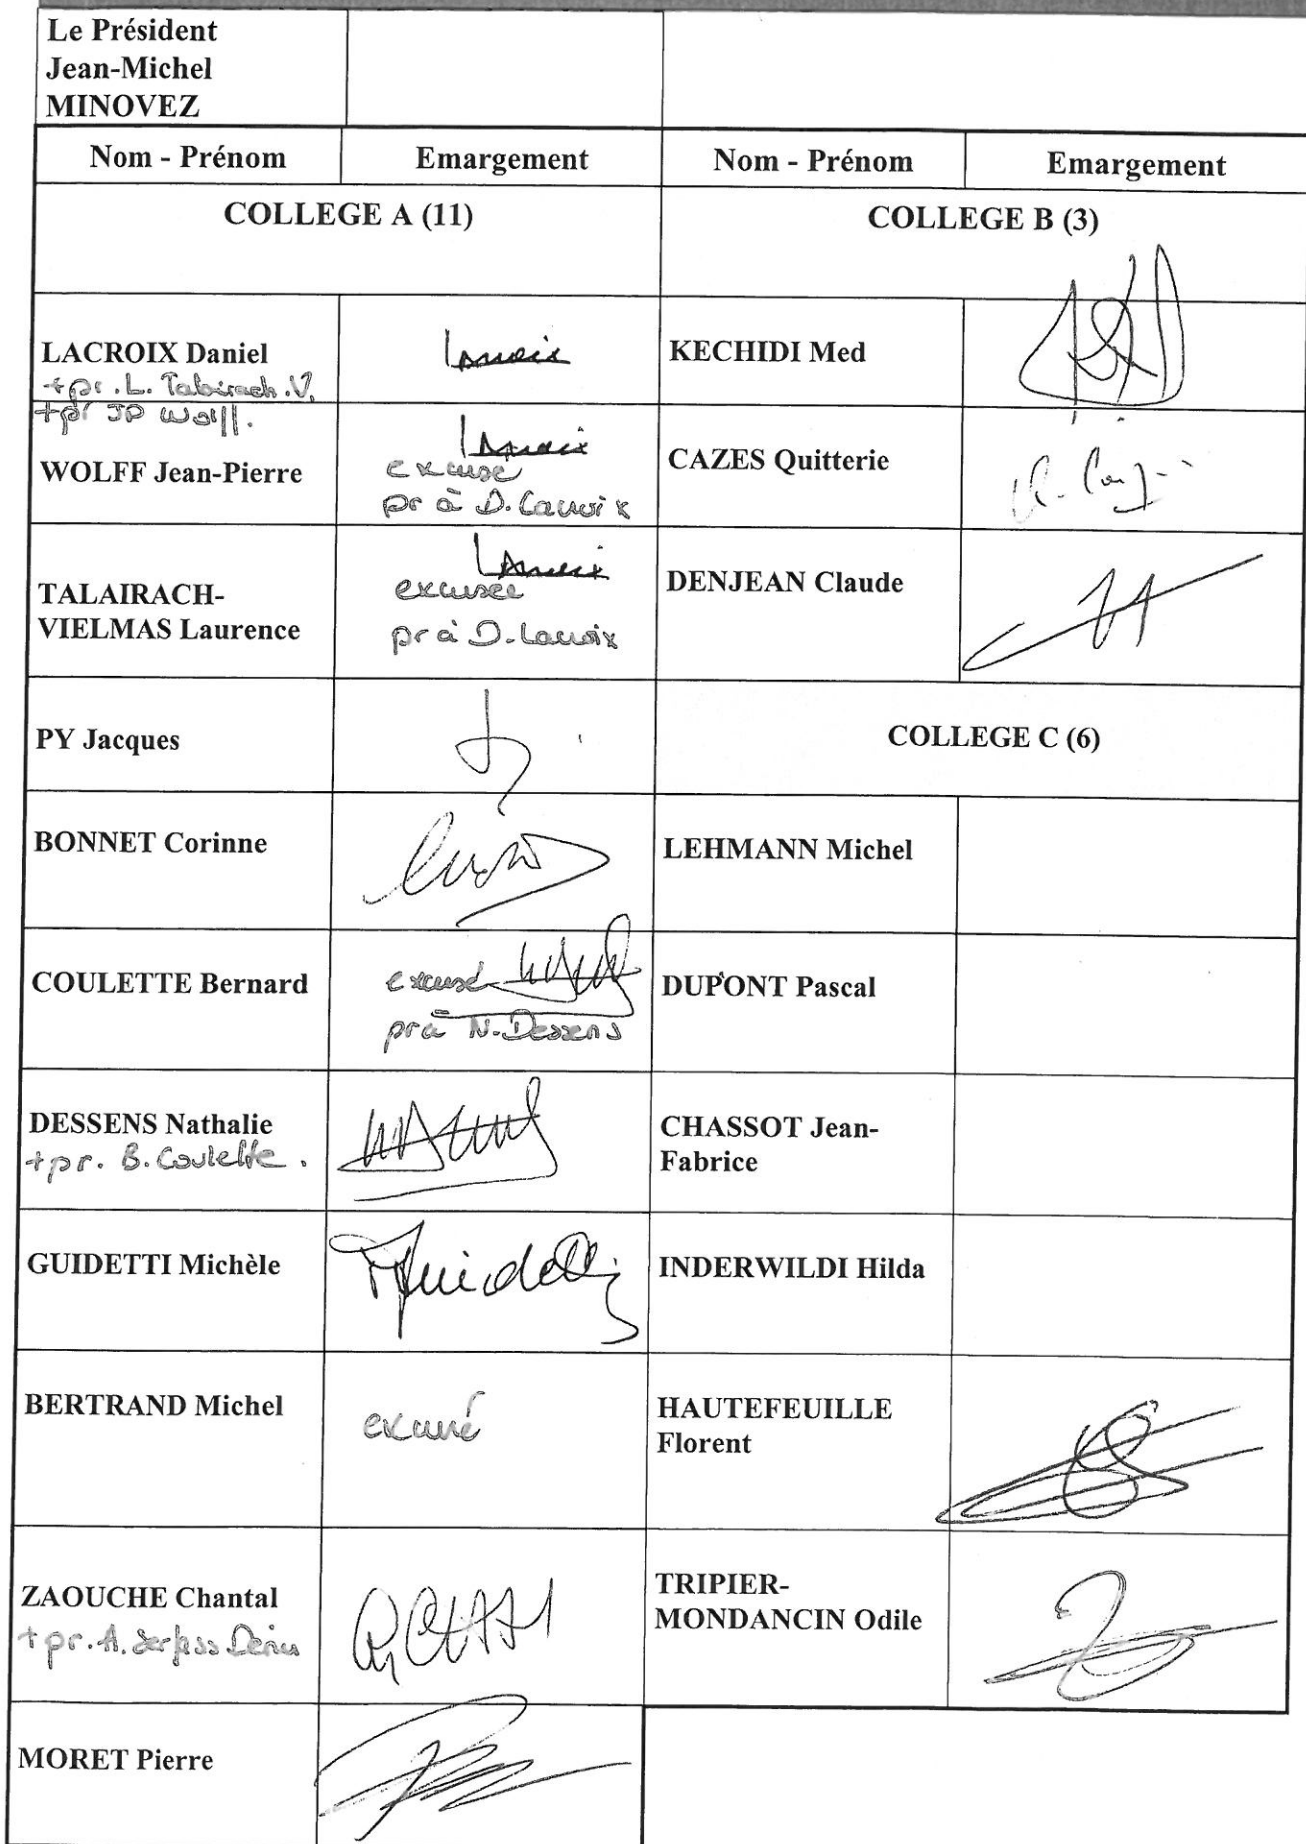 Le Président
Jean-Michel
MINOVEZ
Nom - Prénom
Emargement
Nom - Prénom
Emargement
COLLEGE A (11)
COLLEGE B (3)
LACROIX Daniel
+ pr. L. Talairach.V.
+ pr JP Wolff.
Lacroix
KECHIDI Med
WOLFF Jean-Pierre
Lacroix
excusé
pr à D. Lacroix
CAZES Quitterie
TALAIRACH-
VIELMAS Laurence
Lacroix
excusée
pr à D. Lacroix
DENJEAN Claude
PY Jacques
COLLEGE C (6)
BONNET Corinne
LEHMANN Michel
COULETTE Bernard
excusé
pr à N. Dessens
DUPONT Pascal
DESSENS Nathalie
+ pr. B. Coulette.
CHASSOT Jean-
Fabrice
GUIDETTI Michèle
Guidetti
INDERWILDI Hilda
BERTRAND Michel
excusé
HAUTEFEUILLE
Florent
ZAOUCHE Chantal
+ pr. A.
TRIPIER-
MONDANCIN Odile
MORET Pierre